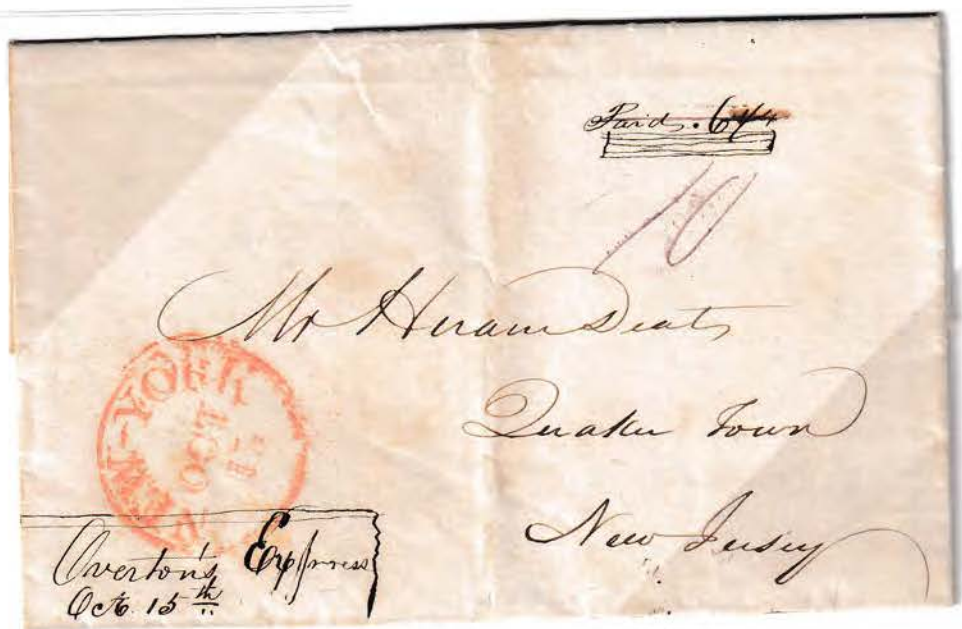 Paid. 6 1/4
10
Mr Hiram Deats
Quaker Town
New Jersey
NEW-YORK
OCT
15
Overton's Express
Oct. 15th